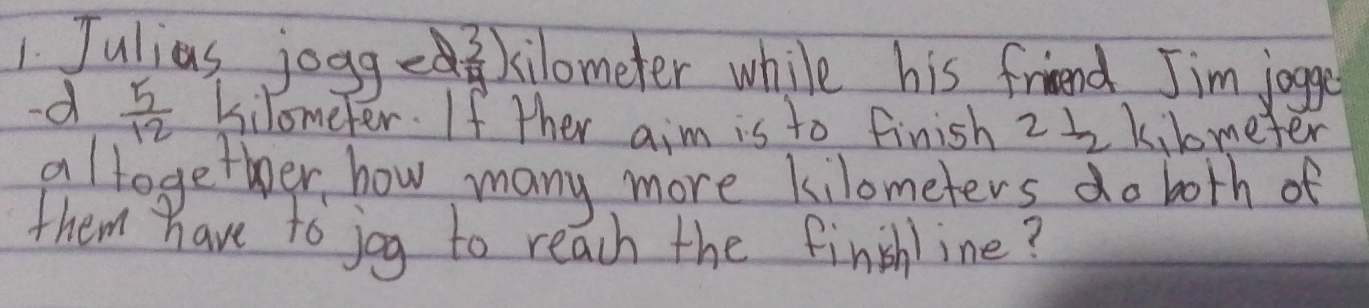 1. Julias jogged 3/4 kilometer while his friend Jim jogge
-d 5/12 kilometer. If ther aim is to finish 2 1/2 kilometer
altogether, how many more kilometers do both of
them have to jog to reach the finishline?